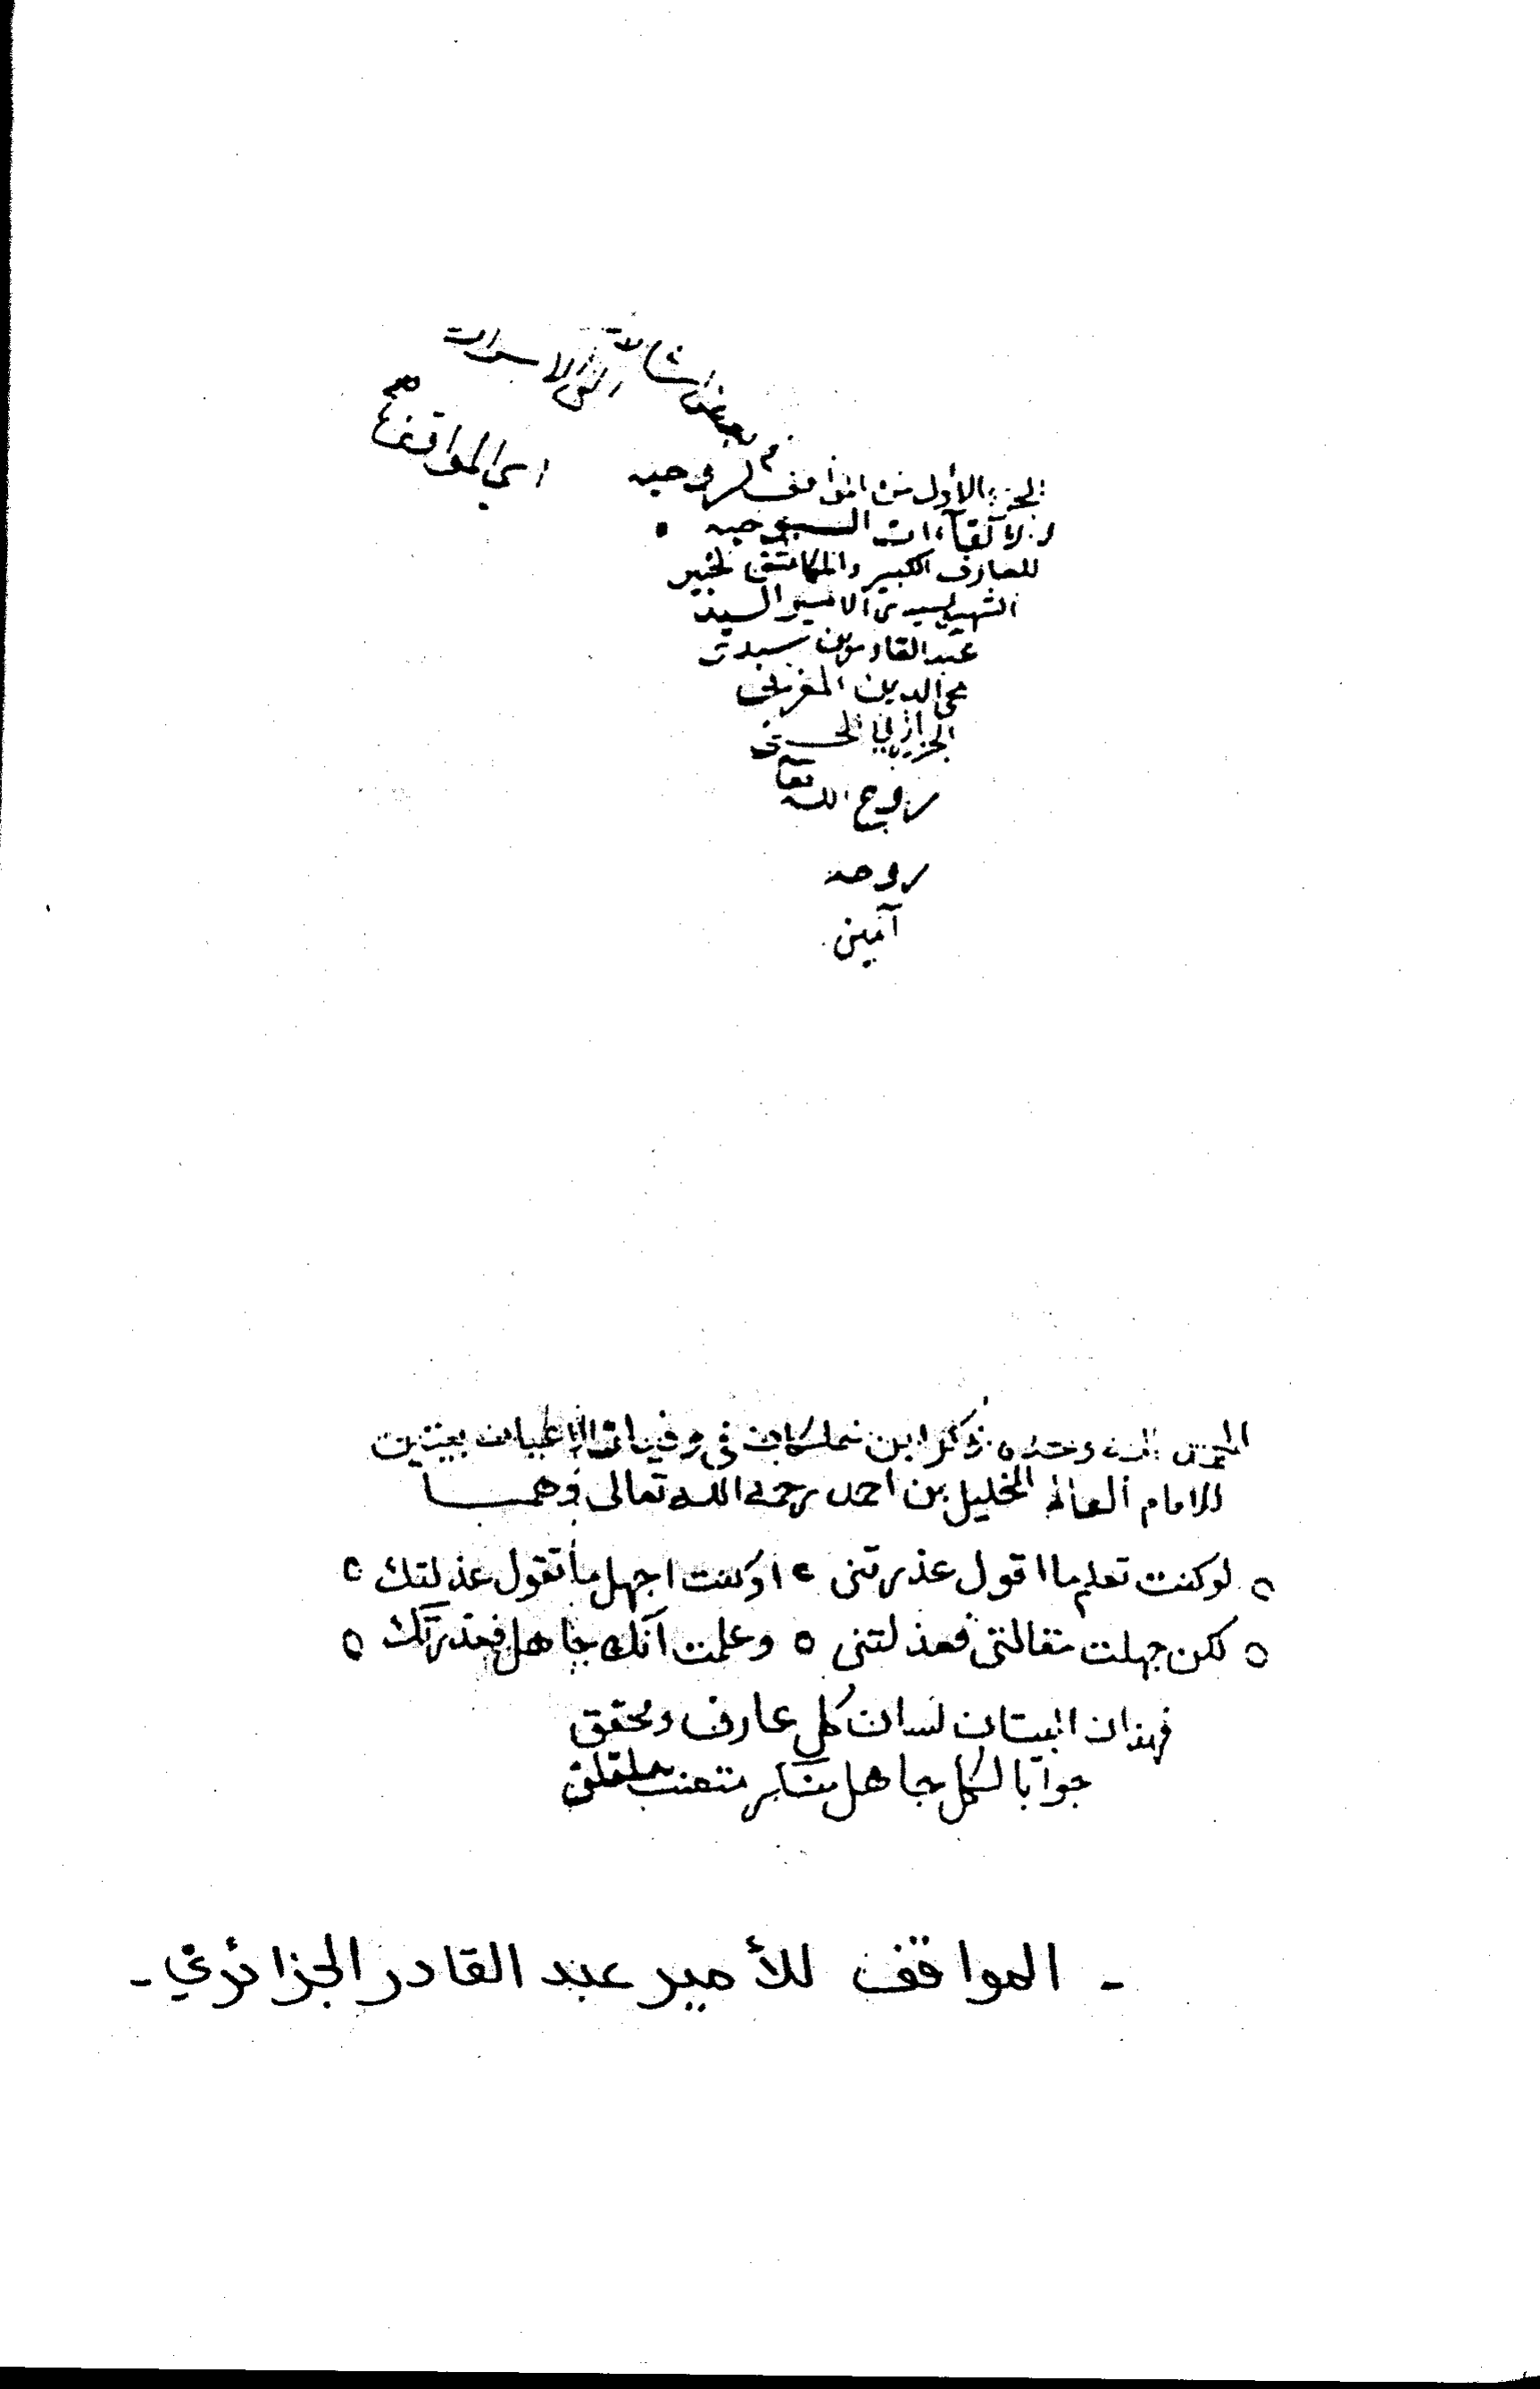 في بعض اشارات القرآن الى الاسرار
الجزء الأول من المواقف الروحيه
اي المواقف
والالقآءات السبوحيه
للعارف الكبير والمكاشف الخبير
الشهير سيدى الامير السيد
عبد القادر بن سيدى
محي الدين المغربي
الجزايري الحسني
روح الله تعآ
روحه
آمين
الحمد لله وحده ذكر ابن خلكان في وفيات الاعيان بيتين
للامام العالم الخليل بن احمد رحمه الله تعالى وهمــا
لو كنت تعلم ما اقول عذرتنى ه او كنت اجهل ما تقول عذلتك ه
لكن جهلت مقالتى فعذلتنى ه وعلمت أنك جاهل فعذرتك ه
فهذان البيتان لسان كل عارف ومحقق
جواباً لكل جاهل منكر متعنت
- المواقف للأمير عبد القادر الجزائري -